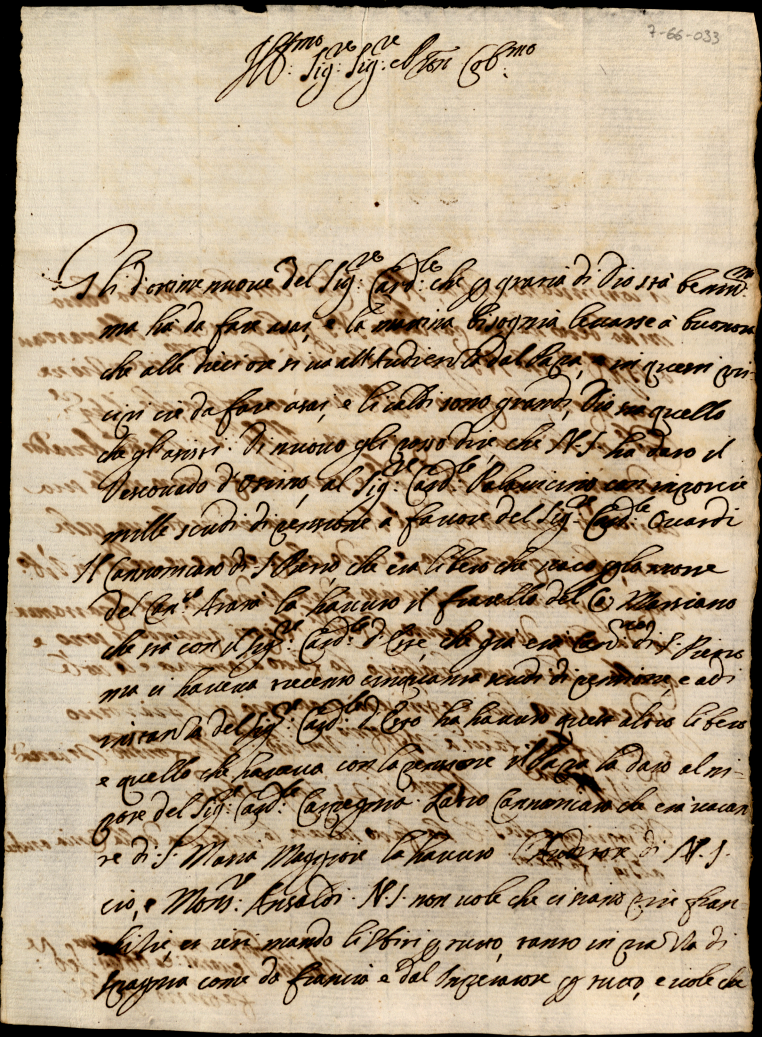 7-66-033
Ill:mo Sig:re Sig:re e Pron Col:mo
Gli d'onime nuove del Sig:re Card:le che p grazia di Dio sta benis:mo
ma ha da fare assai, e la matina bisognia levarse à buonora
che alle dieci ore si va all'Audienza dal Papa, e in questi
ci è da fare assai, e li caldi sono grandi, Dio sia quello
che gl'assisti. Di nuovo gli posso dire che N.S. ha dato il
Vescovado d'Osimo, al Sig:re Card:le Palavicino con
mille scudi di pensione à favore del Sig:re Card:le
Il Cannonicato di S. Pietro che era libero che vacò p la morte
del Can:co la havuto il fratello del Marsiano
che sta con il Sig:re Card:le d'Este, che già era di S. Pietro
ma ci haveva trecento cinquanta scudi di pensione, e ad
instanza del Sig:re Card:le d'Este ha havuto quest'altro libero
e quello che haveva con la pensione il Papa la dato al ni-
pote del Sig:re Card:le Carpegnia. L'altro Cannonicato che era vacan-
te di S. Maria Maggiore la havuto l'Auditore di N.S.
cio, è Mons:re Ansaldi. N.S. non vole che ci siano più fran-
chitie, et ieri mandò li sbiri p tutto, tanto in piazza di
Spagnia come da Francia e dal Imperatore p tutto, e vole che